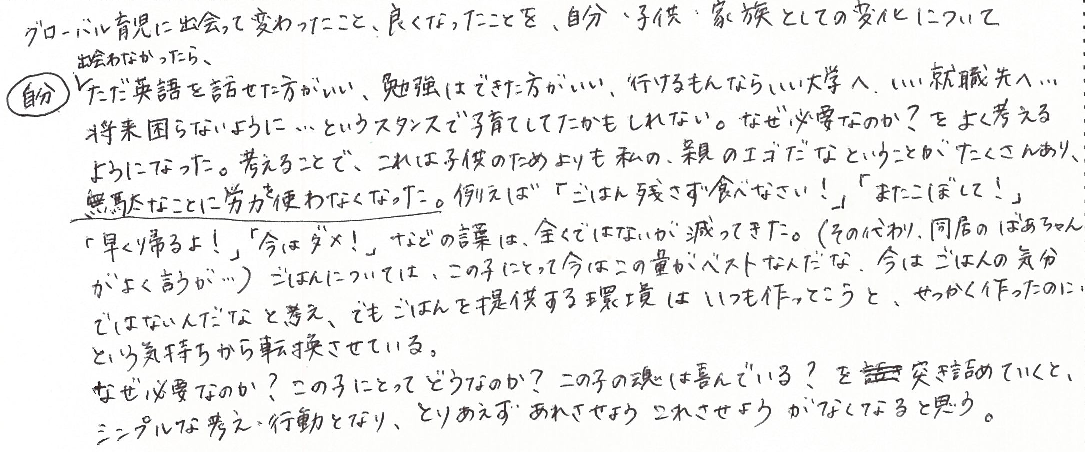 グローバル育児に出会って変わったこと、良くなったことを、自分・子供・家族としての変化について
出会わなかったら、
自分 ただ英語を話せた方がいい、勉強はできた方がいい、行けるもんならいい大学へ、いい就職先へ…
将来困らないように…というスタンスで子育てしてたかもしれない。なぜ必要なのか？をよく考える
ようになった。考えることで、これは子供のためよりも私の、親のエゴだなということがたくさんあり、
無駄なことに労力を使わなくなった。例えば「ごはん残さず食べなさい！」「またこぼして！」
「早く帰るよ！」「今はダメ！」などの言葉は、全くではないが減ってきた。（その代わり、同居のばあちゃん
がよく言うが…）ごはんについては、この子にとって今はこの量がベストなんだな、今はごはんの気分
ではないんだなと考え、でもごはんを提供する環境はいつも作ってこうと、せっかく作ったのに、
という気持ちから転換させている。
なぜ必要なのか？この子にとってどうなのか？この子の魂は喜んでいる？を突き詰めていくと、
シンプルな考え・行動となり、とりあえずあれさせようこれさせようがなくなると思う。